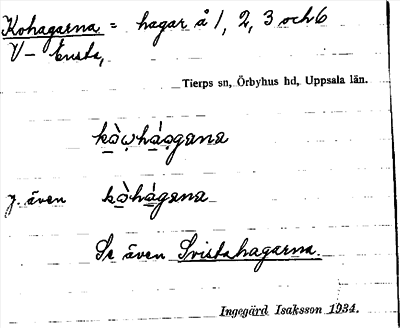 Kohagarna = hagar å 1, 2, 3 och 6
V – Ensta,
Tierps sn, Örbyhus hd, Uppsala län.
kò̠ṷhá̠gana
J. även kò̠há̠gana
Se även Svistahagarna.
Ingegärd Isaksson 1934.